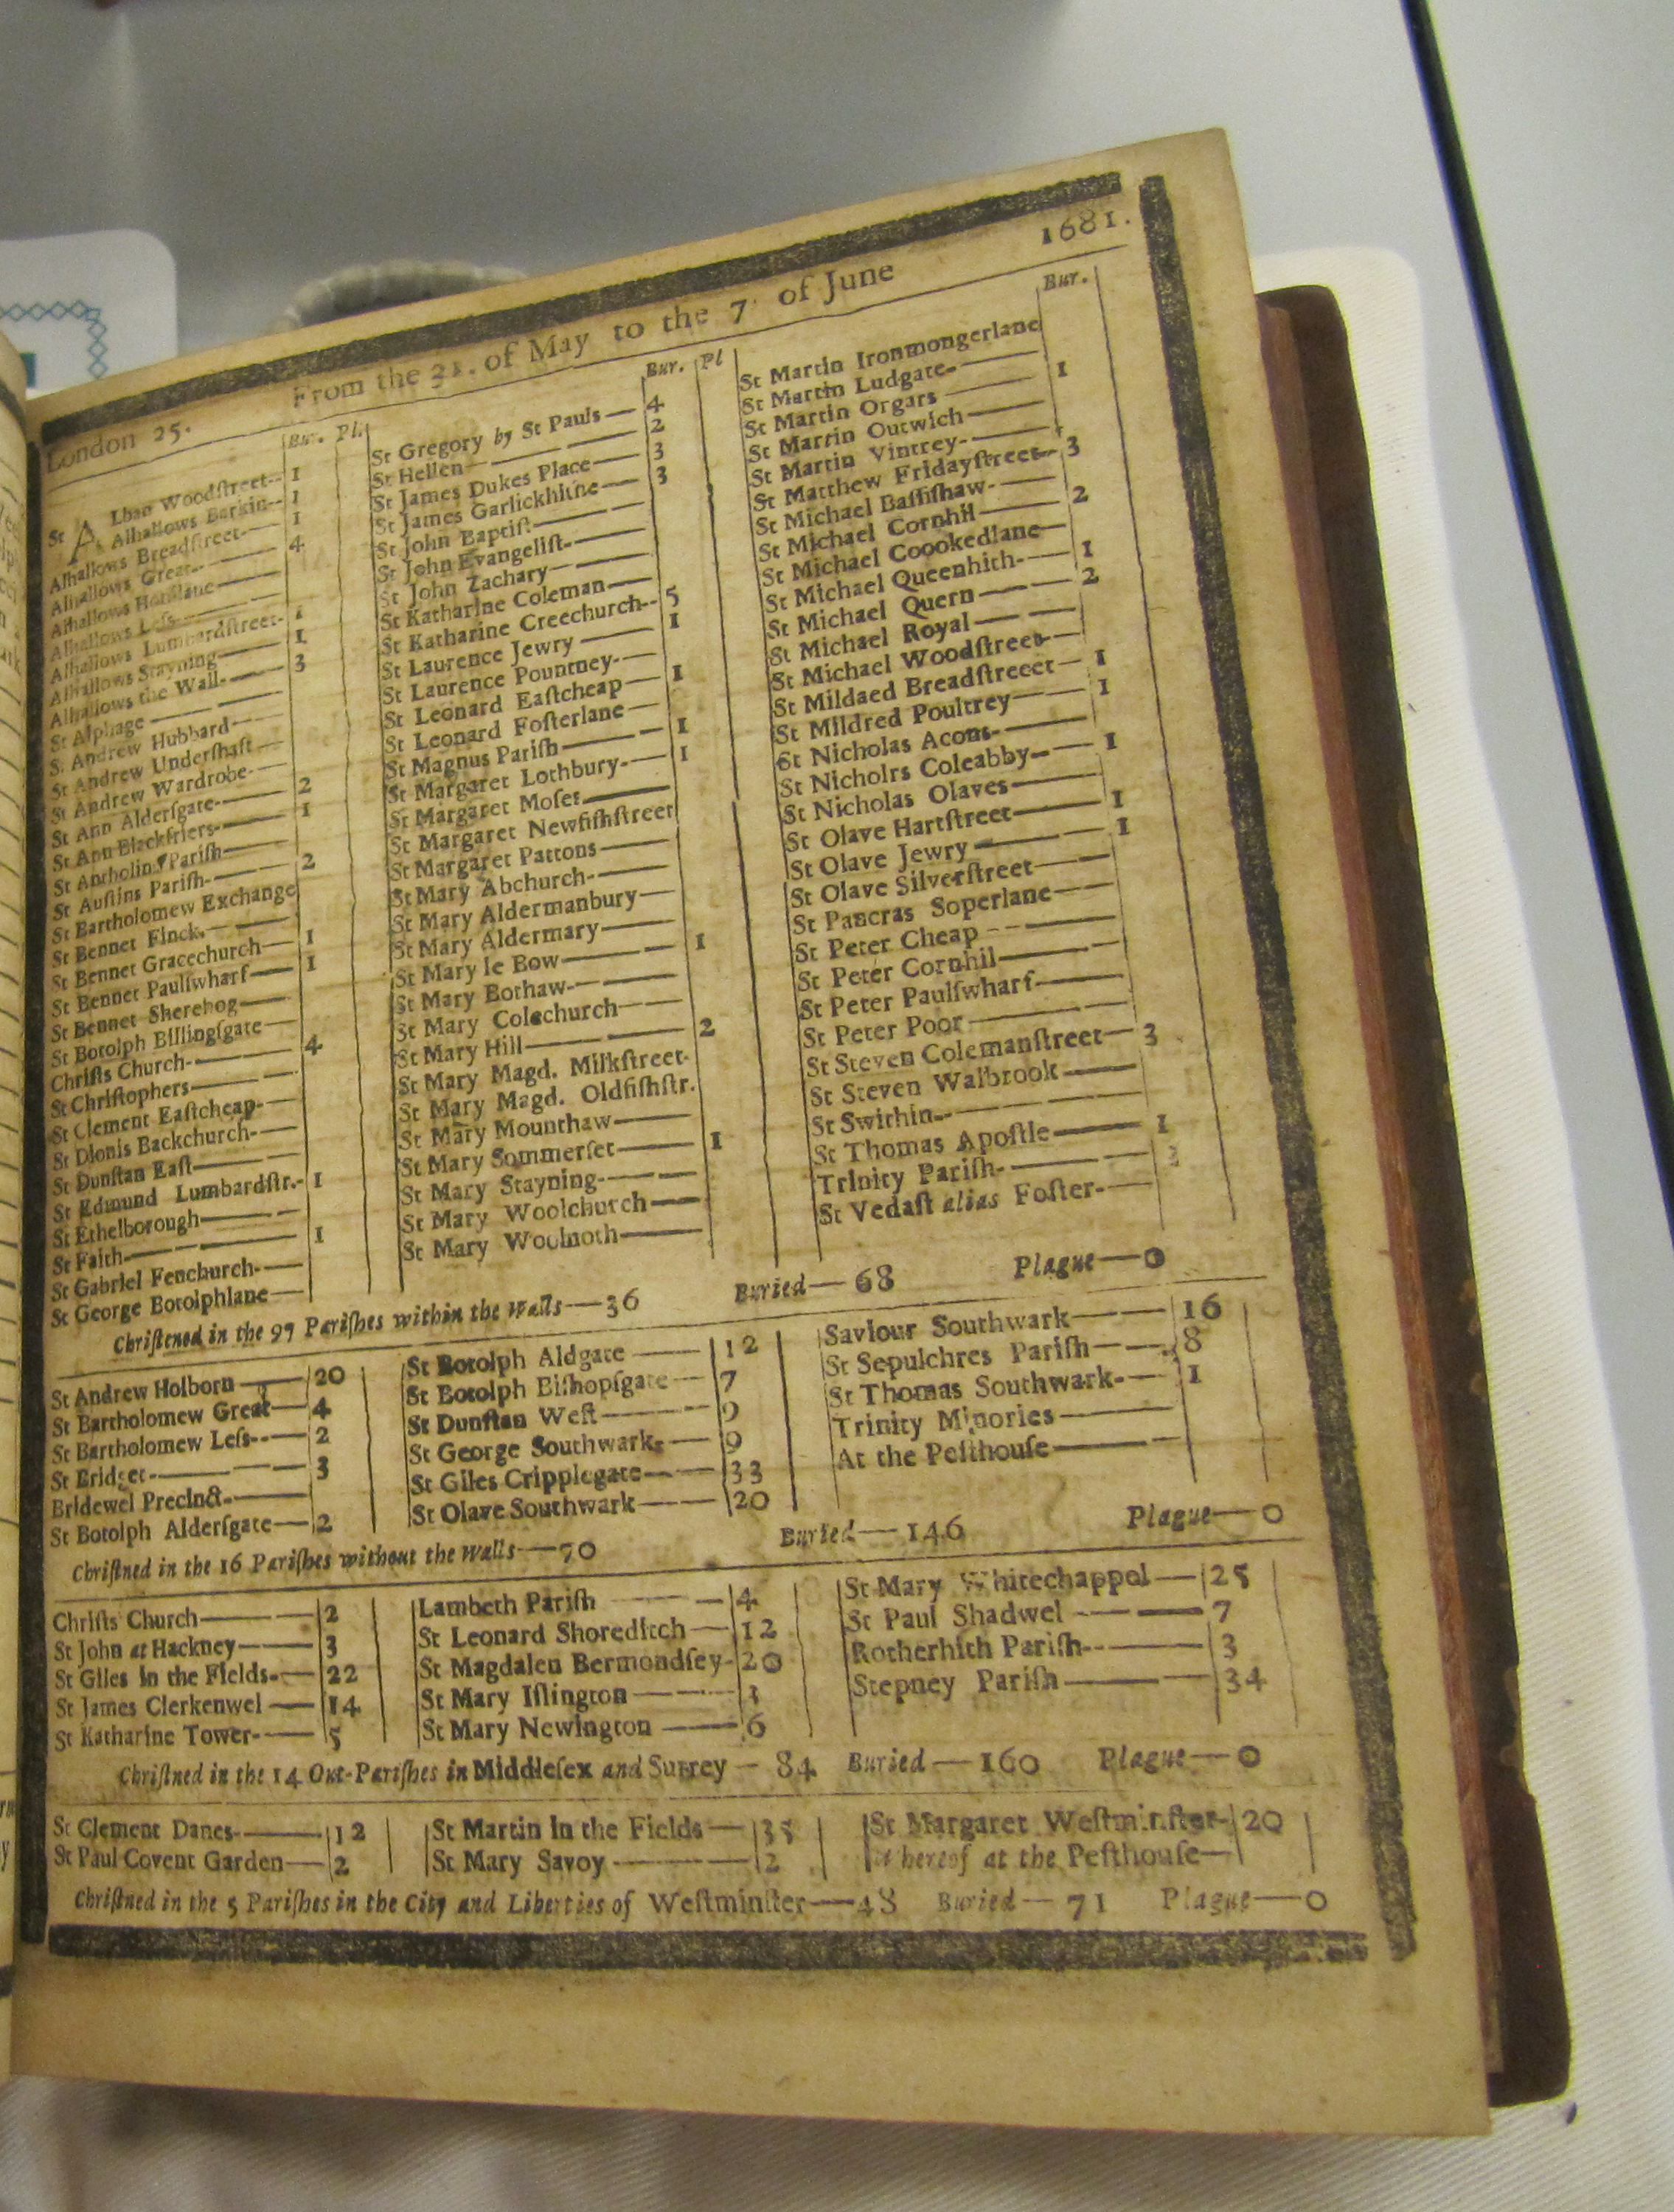 London 25. From the 31. of May to the 7 of June 1681.
Bur. Pl.
St Alban Woodſtreet-- 1
Alhallows Barkin-- 1
Alhallows Breadſtreet-- 1
Alhallows Great-- 4
Alhallows Honilane
Alhallows Leſs
Alhallows Lumbardſtreet- 1
Alhallows Stayning 1
Alhallows the Wall- 3
St Alphage
St Andrew Hubbard
St Andrew Underſhaft
St Andrew Wardrobe-
St Ann Alderſgate- 2
St Ann Blackfriers- 1
St Antholins Pariſh
St Auſtins Pariſh- 2
St Bartholomew Exchange
St Bennet Finck.
St Bennet Gracechurch 1
St Bennet Paulſwharf 1
St Bennet Sherehog
St Botolph Billingſgate
Chriſts Church- 4
St Chriſtophers
St Clement Eaſtcheap-
St Dionis Backchurch-
St Dunſtan Eaſt
St Edmund Lumbardſtr.- 1
St Ethelborough
St Faith 1
St Gabriel Fenchurch-
St George Botolphlane
Bur. Pl
St Gregory by St Pauls — 4
St Hellen — 2
St James Dukes Place — 3
St James Garlickhithe — 3
St John Baptiſt
St John Evangeliſt-
St John Zachary
St Katharine Coleman
St Katharine Creechurch-- 5
St Laurence Jewry — 1
St Laurence Pountney-
St Leonard Eaſtcheap — 1
St Leonard Foſterlane
St Magnus Pariſh — 1
St Margaret Lothbury- 1
St Margaret Moſes
St Margaret Newfiſhſtreet
St Margaret Pattons
St Mary Abchurch-
St Mary Aldermanbury
St Mary Aldermary
St Mary le Bow — 1
St Mary Bothaw-
St Mary Colechurch
St Mary Hill — 2
St Mary Magd. Milkſtreet-
St Mary Magd. Oldfiſhſtr.
St Mary Mounthaw
St Mary Sommerſet — 1
St Mary Stayning-
St Mary Woolchurch
St Mary Woolnoth
Bur.
St Martin Ironmongerlane
St Martin Ludgate- 1
St Martin Orgars
St Martin Outwich
St Martin Vintrey-
St Matthew Fridayſtreet- 3
St Michael Baſſiſhaw-
St Michael Cornhil — 2
St Michael Coookedlane
St Michael Queenhith- 1
St Michael Quern — 2
St Michael Royal
St Michael Woodſtreet-
St Mildaed Breadſtreeet — 1
St Mildred Poultrey — 1
St Nicholas Acons-
St Nicholrs Coleabby- 1
St Nicholas Olaves
St Olave Hartſtreet — 1
St Olave Jewry — 1
St Olave Silverſtreet
St Pancras Soperlane
St Peter Cheap
St Peter Cornhil
St Peter Paulſwharf
St Peter Poor
St Steven Colemanſtreet — 3
St Steven Walbrook
St Swithin
St Thomas Apoſtle — 1
Trinity Pariſh-
St Vedaſt alias Foſter-
Chriſtened in the 97 Pariſhes within the Walls — 36 Buried — 68 Plague — 0
St Andrew Holborn — 20
St Bartholomew Great — 4
St Bartholomew Leſs-- 2
St Bridget- 3
Bridewel Precinct-
St Botolph Alderſgate — 2
St Botolph Aldgate — 12
St Botolph Biſhopſgate — 7
St Dunſtan Weſt — 9
St George Southwark — 9
St Giles Cripplegate — 33
St Olave Southwark — 20
Saviour Southwark — 16
St Sepulchres Pariſh — 8
St Thomas Southwark- 1
Trinity Minories
At the Peſthouſe
Chriſtned in the 16 Pariſhes without the Walls — 70 Buried — 146 Plague — 0
Chriſts Church — 2
St John at Hackney — 3
St Giles in the Fields- 22
St James Clerkenwel — 14
St Katharine Tower- 5
Lambeth Pariſh — 4
St Leonard Shoreditch — 12
St Magdalen Bermondſey- 20
St Mary Iſlington — 3
St Mary Newington — 6
St Mary Whitechappel — 25
St Paul Shadwel — 7
Rotherhith Pariſh-- 3
Stepney Pariſh — 34
Chriſtned in the 14 Out-Pariſhes in Middleſex and Surrey — 84 Buried — 160 Plague — 0
St Clement Danes- 12
St Paul Covent Garden — 2
St Martin in the Fields — 35
St Mary Savoy — 2
St Margaret Weſtminſter- 20
Whereof at the Peſthouſe
Chriſtned in the 5 Pariſhes in the City and Liberties of Weſtminſter — 48 Buried — 71 Plague — 0